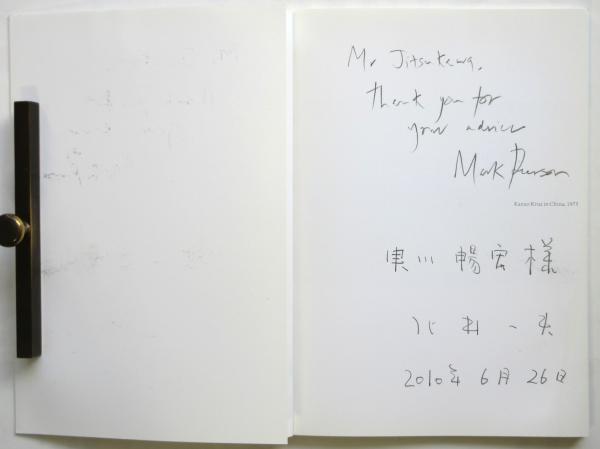 Mr Jitsukawa,
Thank you for
your advice
Mark Pearson
Kazuo Kitai in China, 1973
実川 暢宏 様
北井 一夫
2010年 6月 26日